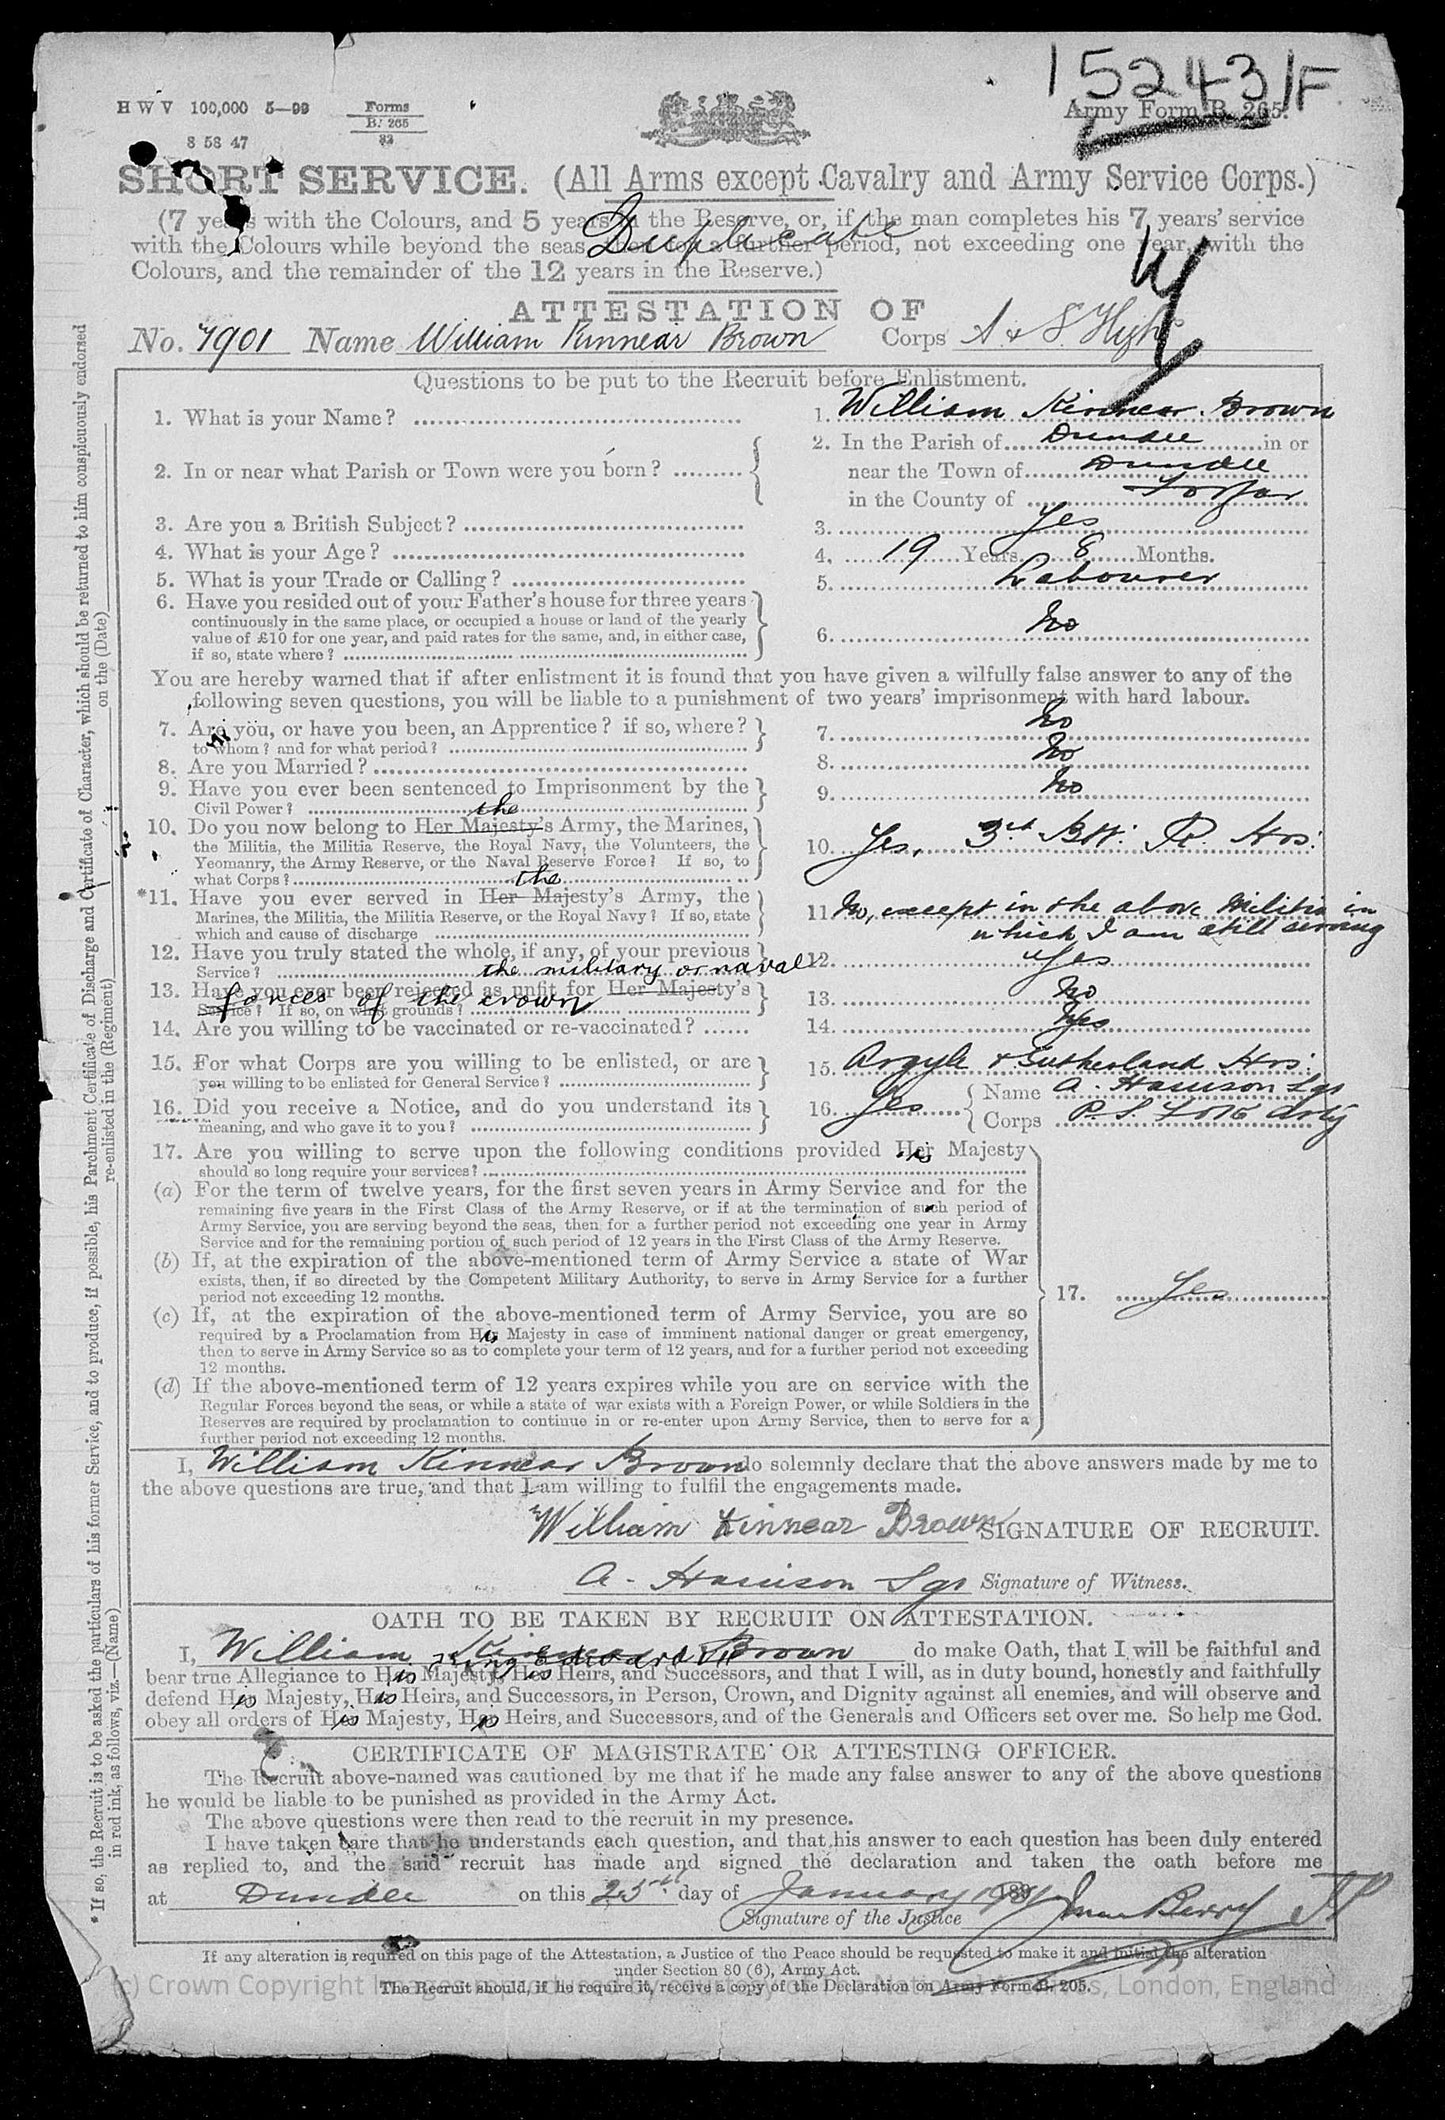 15243/F
H W V 100,000 5—99 Forms B. 265 Army Form B. 265.
8 58 47 32
SHORT SERVICE. (All Arms except Cavalry and Army Service Corps.)
(7 years with the Colours, and 5 years in the Reserve, or, if the man completes his 7 years' service
with the Colours while beyond the seas, then for a further period, not exceeding one year, with the
Colours, and the remainder of the 12 years in the Reserve.)
Duplicate
ATTESTATION OF
No. 7901 Name William Kinnear Brown Corps A & S. Highrs
Questions to be put to the Recruit before Enlistment.
1. What is your Name? 1. William Kinnear Brown
2. In or near what Parish or Town were you born? 2. In the Parish of Dundee in or
near the Town of Dundee
in the County of Forfar
3. Are you a British Subject? 3. Yes
4. What is your Age? 4. 19 Years 8 Months.
5. What is your Trade or Calling? 5. Labourer
6. Have you resided out of your Father's house for three years
continuously in the same place, or occupied a house or land of the yearly
value of £10 for one year, and paid rates for the same, and, in either case, 6. No
if so, state where?
You are hereby warned that if after enlistment it is found that you have given a wilfully false answer to any of the
following seven questions, you will be liable to a punishment of two years' imprisonment with hard labour.
7. Are you, or have you been, an Apprentice? if so, where? 7. No
to whom? and for what period?
8. Are you Married? 8. No
9. Have you ever been sentenced to Imprisonment by the 9. No
Civil Power?
the
10. Do you now belong to Her Majesty's Army, the Marines,
the Militia, the Militia Reserve, the Royal Navy, the Volunteers, the 10. Yes, 3rd Bn: R. Hrs:
Yeomanry, the Army Reserve, or the Naval Reserve Force? If so, to
what Corps?
the
*11. Have you ever served in Her Majesty's Army, the
Marines, the Militia, the Militia Reserve, or the Royal Navy? If so, state 11. No, except in the above Militia in
which and cause of discharge which I am still serving
12. Have you truly stated the whole, if any, of your previous 12. Yes
Service?
the military or naval
13. Have you ever been rejected as unfit for Her Majesty's 13. No
forces of the crown
Service? If so, on what grounds?
14. Are you willing to be vaccinated or re-vaccinated? 14. Yes
15. For what Corps are you willing to be enlisted, or are 15. Argyll & Sutherland Hrs:
you willing to be enlisted for General Service?
16. Did you receive a Notice, and do you understand its 16. Yes Name A. Harrison Sgr
meaning, and who gave it to you? Corps
17. Are you willing to serve upon the following conditions provided His Majesty
should so long require your services?
(a) For the term of twelve years, for the first seven years in Army Service and for the
remaining five years in the First Class of the Army Reserve, or if at the termination of such period of
Army Service, you are serving beyond the seas, then for a further period not exceeding one year in Army
Service and for the remaining portion of such period of 12 years in the First Class of the Army Reserve.
(b) If, at the expiration of the above-mentioned term of Army Service a state of War
exists, then, if so directed by the Competent Military Authority, to serve in Army Service for a further
period not exceeding 12 months. 17. Yes
(c) If, at the expiration of the above-mentioned term of Army Service, you are so
required by a Proclamation from His Majesty in case of imminent national danger or great emergency,
then to serve in Army Service so as to complete your term of 12 years, and for a further period not exceeding
12 months.
(d) If the above-mentioned term of 12 years expires while you are on service with the
Regular Forces beyond the seas, or while a state of war exists with a Foreign Power, or while Soldiers in the
Reserves are required by proclamation to continue in or re-enter upon Army Service, then to serve for a
further period not exceeding 12 months.
I, William Kinnear Brown do solemnly declare that the above answers made by me to
the above questions are true, and that I am willing to fulfil the engagements made.
William Kinnear Brown SIGNATURE OF RECRUIT.
A. Harrison Sgr Signature of Witness.
OATH TO BE TAKEN BY RECRUIT ON ATTESTATION.
I, William Kinnear Brown do make Oath, that I will be faithful and
King Edward VII
bear true Allegiance to His Majesty, His Heirs, and Successors, and that I will, as in duty bound, honestly and faithfully
defend His Majesty, His Heirs, and Successors, in Person, Crown, and Dignity against all enemies, and will observe and
obey all orders of His Majesty, His Heirs, and Successors, and of the Generals and Officers set over me. So help me God.
CERTIFICATE OF MAGISTRATE OR ATTESTING OFFICER.
The Recruit above-named was cautioned by me that if he made any false answer to any of the above questions
he would be liable to be punished as provided in the Army Act.
The above questions were then read to the recruit in my presence.
I have taken care that he understands each question, and that his answer to each question has been duly entered
as replied to, and the said recruit has made and signed the declaration and taken the oath before me
at Dundee on this 25th day of January 1901
Signature of the Justice Berry JP
If any alteration is required on this page of the Attestation, a Justice of the Peace should be requested to make it and initial the alteration
under Section 80 (6), Army Act.
The Recruit should, if he require it, receive a copy of the Declaration on Army Form B. 205.
(c) Crown Copyright Images reproduced by courtesy of The National Archives, London, England
* If so, the Recruit is to be asked the particulars of his former Service, and to produce, if possible, his Parchment Certificate of Discharge and Certificate of Character, which should be returned to him conspicuously endorsed
in red ink, as follows, viz.—(Name) re-enlisted in the (Regiment) on the (Date)